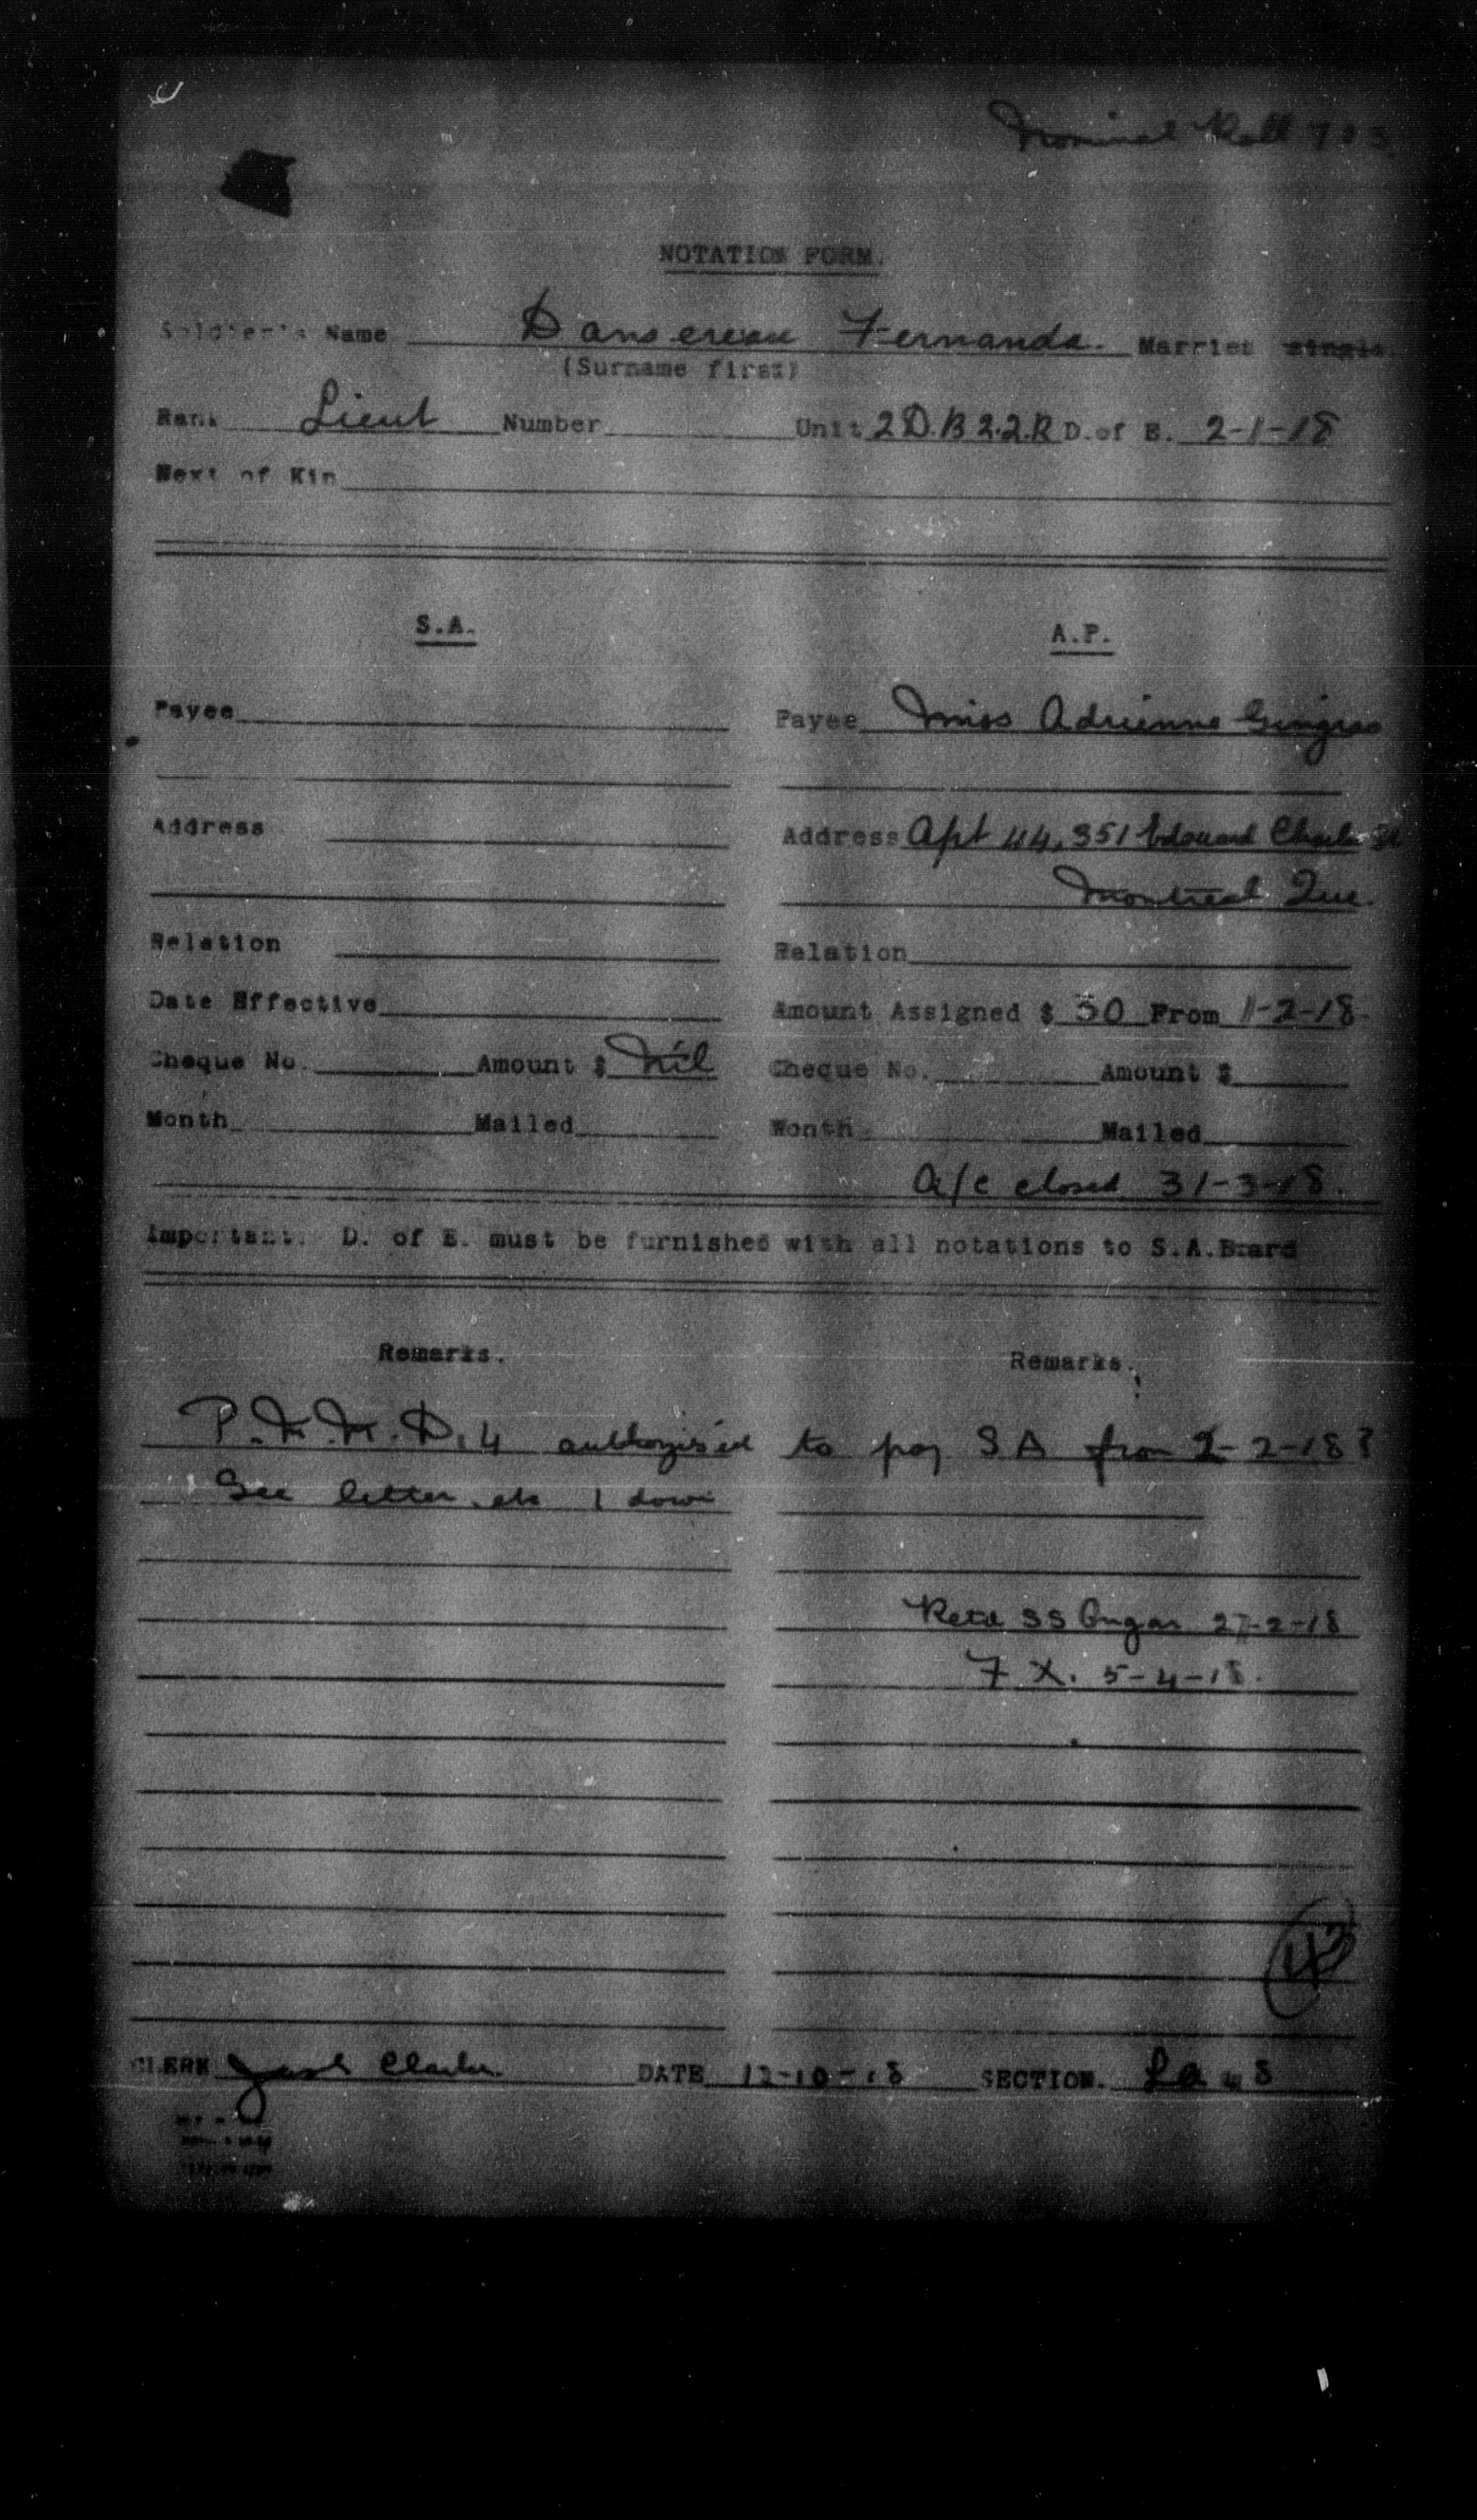 Nominal Roll
NOTATION FORM.
Soldier's Name Dansereau Fernando. Married single.
(Surname first)
Rank Lieut Number Unit 2 D.B 2.2.R D. of E. 2-1-18
Next of Kin
S.A. A.P.
Payee Payee Miss Adrienne Gingras
Address Address Apt 44, 351 Edouard Charles St
Montreal Que.
Relation Relation
Date Effective Amount Assigned $ 30 From 1-2-18
Cheque No. Amount $ Nil Cheque No. Amount $
Month Mailed Month Mailed
a/c closed 31-3-18.
Important. D. of E. must be furnished with all notations to S.A. Board
Remarks. Remarks.
P.M.M.D.4 authorised to pay SA from 2-2-18?
See letter etc 1 down
Retd SS 27-2-18
F. X. 5-4-18.
43
CLERK Clarke DATE 12-10-18 SECTION.